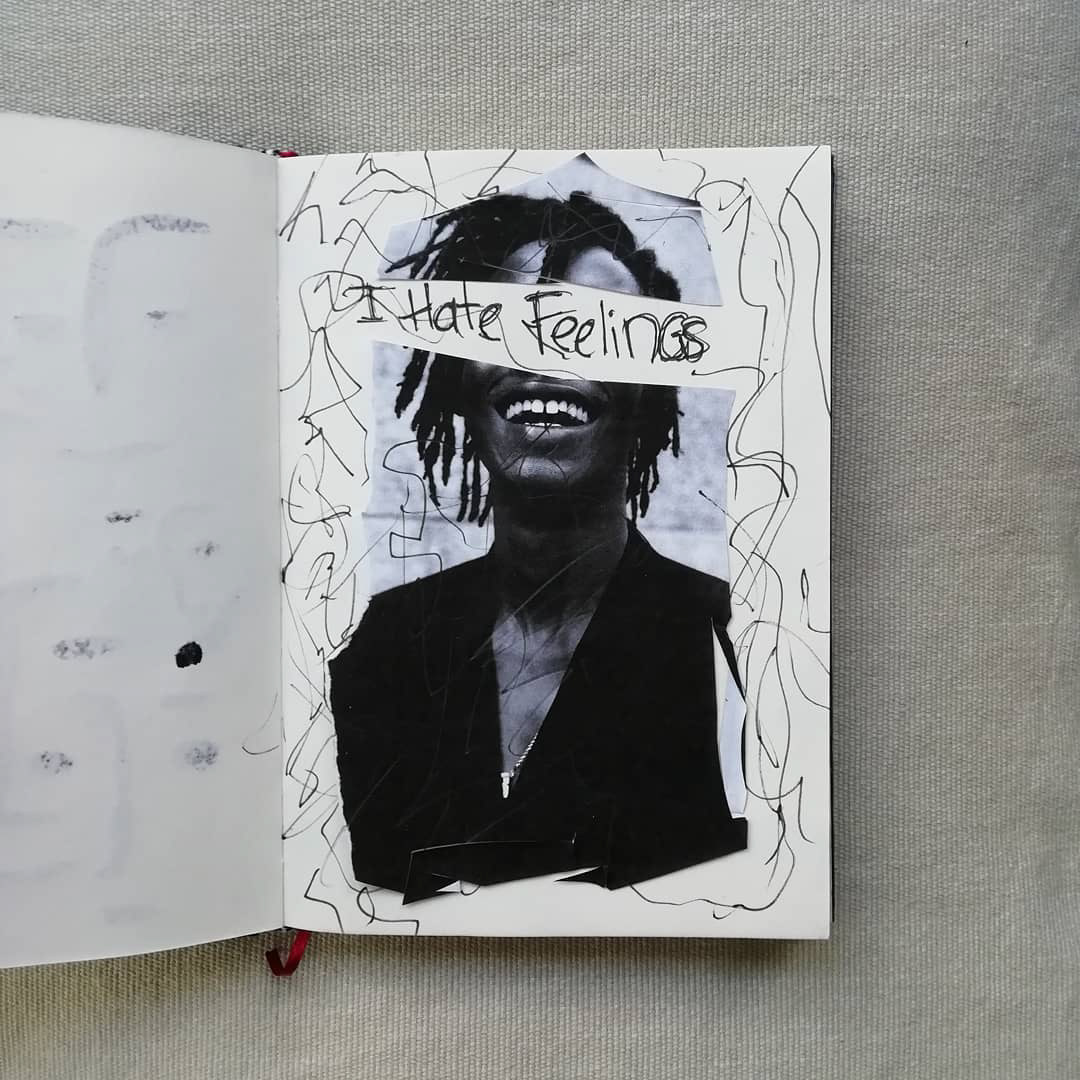 I Hate Feelings